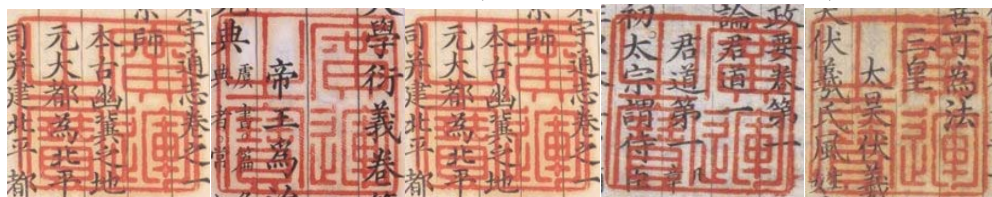 宇通志卷之一
京師
本古幽冀之地
元大都為北平
司并建北平都
大學衍義卷
帝王為治
虞書篇
典者常
典
宇通志卷之一
京師
本古幽冀之地
元大都為北平
司并建北平都
政要卷第一
論君道一
君道第一 凡 章
初太宗謂侍臣
善可為法
三皇
太昊伏羲
太伏羲氏風姓